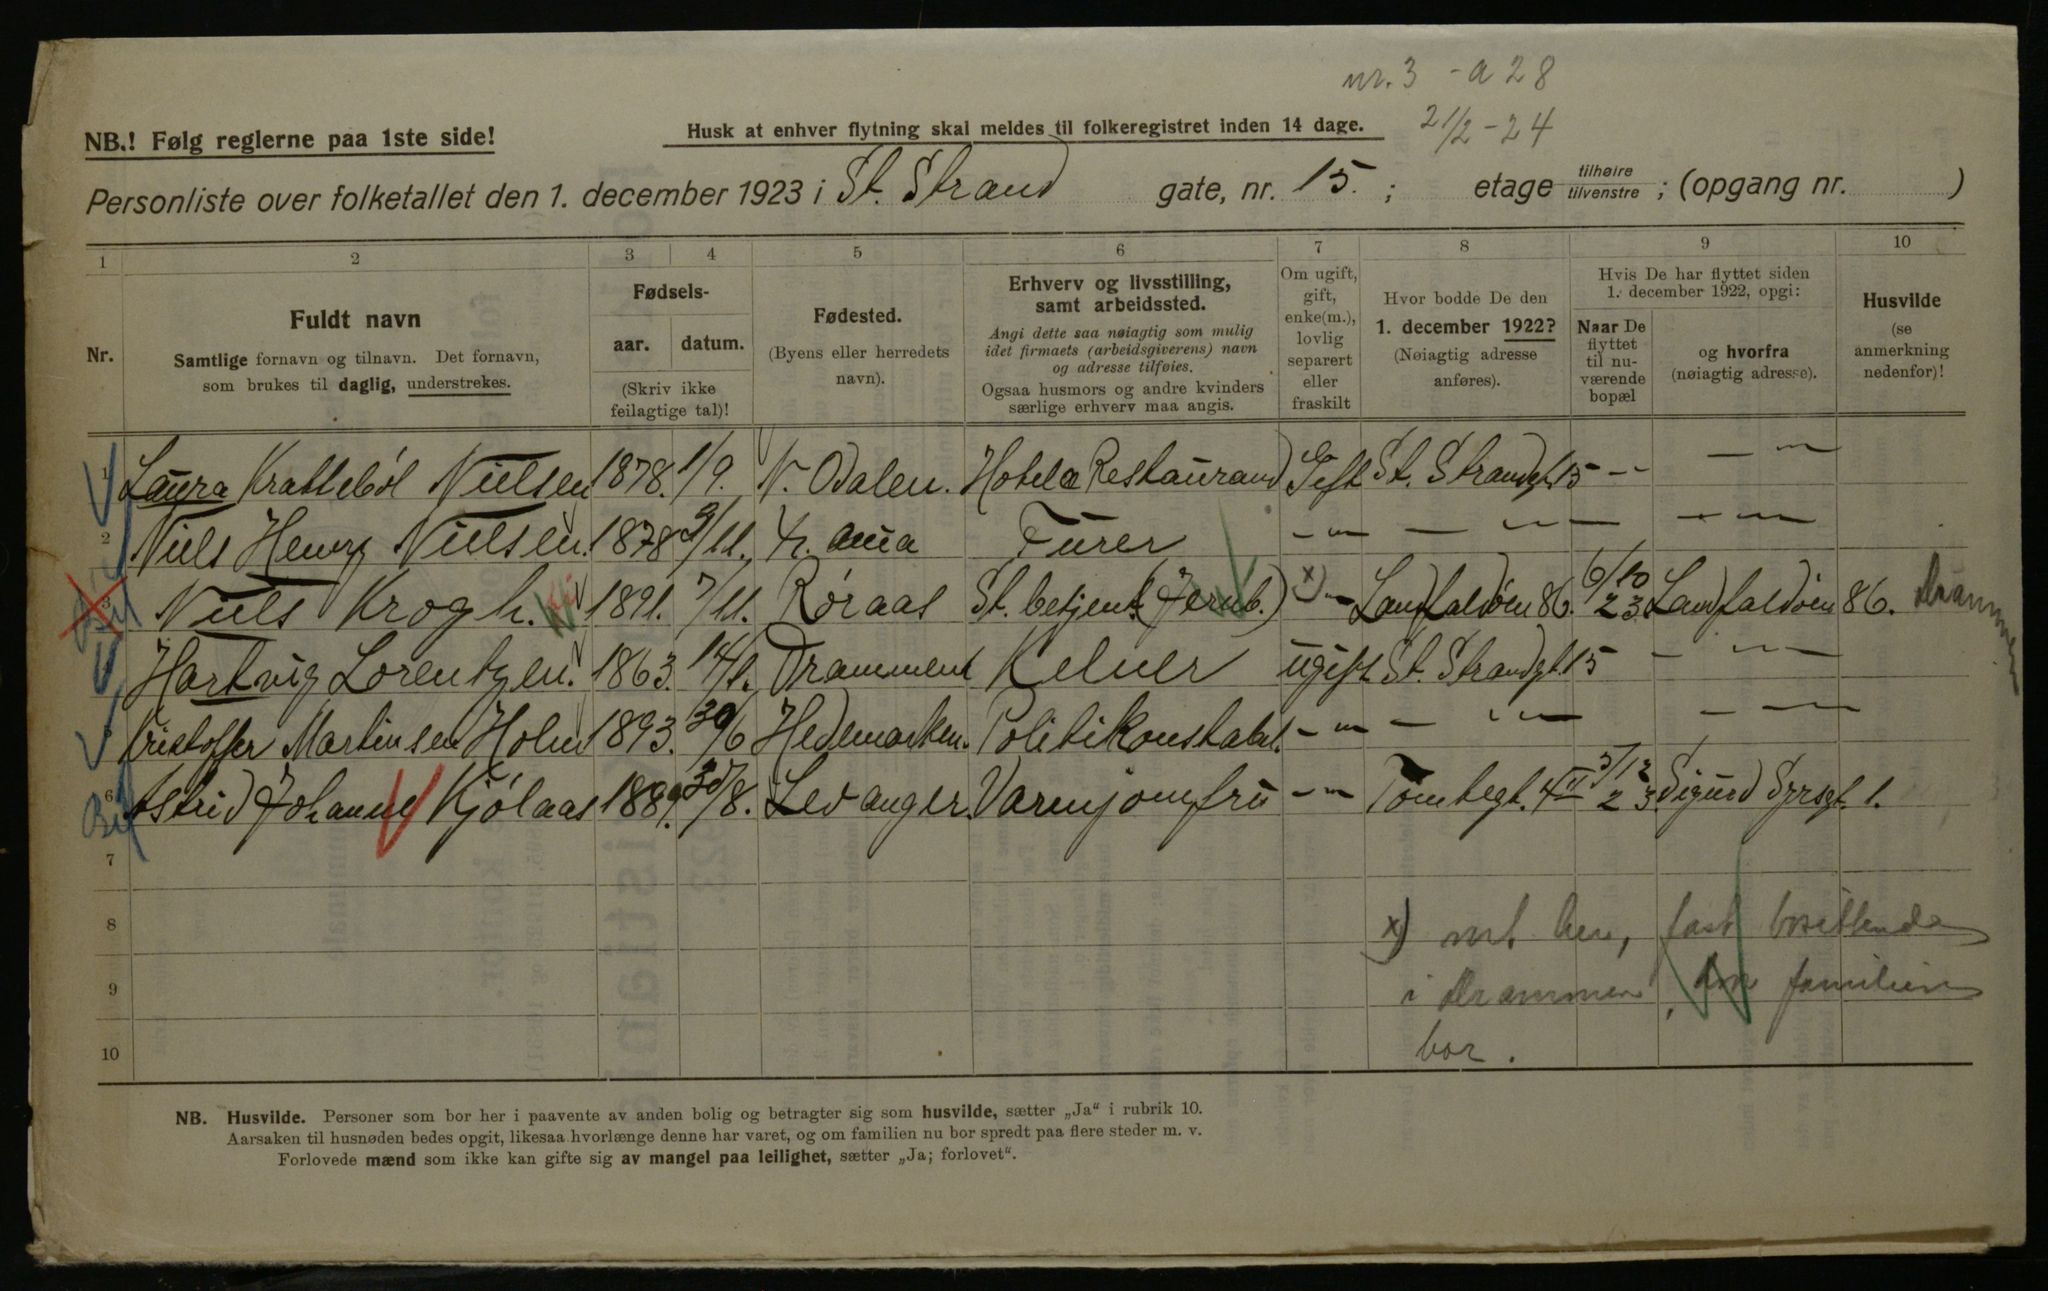 nr. 3 - a 28
NB.! Følg reglerne paa 1ste side!
Husk at enhver flytning skal meldes til folkeregistret inden 14 dage.
21/2 - 24
Personliste over folketallet den 1. december 1923 i St. Strand gate, nr. 15. ; etage tilhøire tilvenstre ; (opgang nr. )
1 2 3 4 5 6 7 8 9 10
Nr.
Fuldt navn
Samtlige fornavn og tilnavn. Det fornavn,
som brukes til daglig, understrekes.
Fødsels-
aar. datum.
(Skriv ikke
feilagtige tal)!
Fødested.
(Byens eller herredets
navn).
Erhverv og livsstilling,
samt arbeidssted.
Angi dette saa nøiagtig som mulig
idet firmaets (arbeidsgiverens) navn
og adresse tilføies.
Ogsaa husmors og andre kvinders
særlige erhverv maa angis.
Om ugift,
gift,
enke(m.),
lovlig
separert
eller
fraskilt
Hvor bodde De den
1. december 1922?
(Nøiagtig adresse
anføres).
Hvis De har flyttet siden
1. december 1922, opgi:
Naar De
flyttet
til nu-
værende
bopæl
og hvorfra
(nøiagtig adresse).
Husvilde
(se
anmerkning
nedenfor)!
1 Laura Krattebøl Nielsen 1878. 1/9. N. Odalen. Hotel & Restaurand Gift St. Strandgt. 15 - - - " -
2 Niels Henry Nielsen. 1878 9/11. - " - - " - - " -
3 Niels Krogh. 1891. 7/11. Røraas St. betjent (Jernb.) x) - " - Landfaldøen 86. 6/10 23. Landfaldøen 86. Drammen
Hartvig Lorentzen. 1863. 14/1. Drammen Kelner ugift St. Strandgt. 15 - " -
5 Kristoffer Martinsen Holm 1893. 30/6 Hedemarken. Politikonstabel. - " - - " - - " -
6 Astrid Johanne Kjølaas 1889. 30/8. Levanger. Varmjomfru - " - Tomtegt. 4 II 5/12 23. Sigurd Syrsgt. 1.
7
8 x) fast bosittende
9 i Drammen, familien
10 bor.
NB. Husvilde. Personer som bor her i paavente av anden bolig og betragter sig som husvilde, sætter „Ja“ i rubrik 10.
Aarsaken til husnøden bedes opgit, likesaa hvorlænge denne har varet, og om familien nu bor spredt paa flere steder m. v.
Forlovede mænd som ikke kan gifte sig av mangel paa leilighet, sætter „Ja; forlovet“.